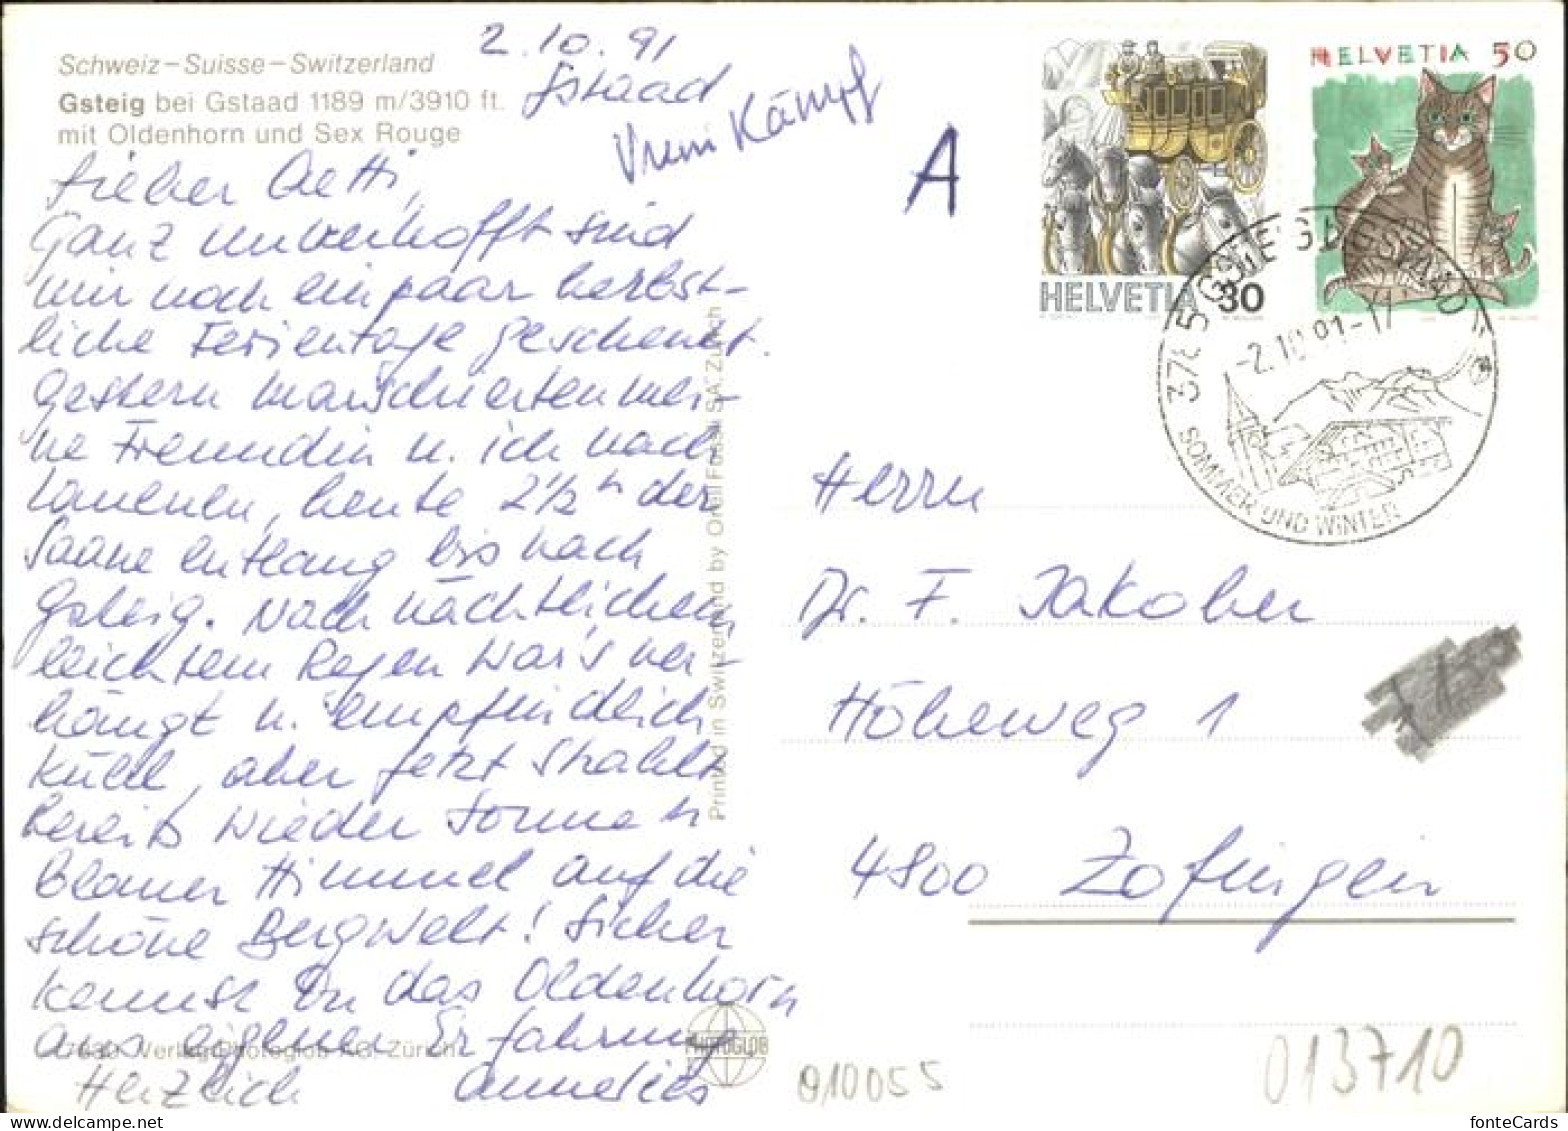 Schweiz–Suisse–Switzerland
Gsteig bei Gstaad 1189 m/3910 ft.
mit Oldenhorn und Sex Rouge
2.10.91
Gstaad
Vreni Kämpf
A
HELVETIA 80
HELVETIA 50
3785 GSTEIG B. GSTAAD
-2.10.91-17
SOMMER UND WINTER
Lieber Aetti,
Ganz unverhofft sind
mir noch ein paar herbst-
liche Ferientage geschenkt.
Gestern marschierten mei-
ne Freundin u. ich nach
Lauenen, heute 2½ h der
Saane entlang bis nach
Gsteig. Nach nächtlichem,
leichtem Regen war's ver-
hängt u. empfindlich
kühl, aber jetzt strahlt
bereits wieder Sonne u
blauer Himmel auf die
schöne Bergwelt! Sicher
kennst Du das Oldenhorn
aus eigener Erfahrung
Herzlich Annelies
Printed in Switzerland by Orell Füssli SA, Zürich
Verlag Photoglob AG, Zürich
PHOTOGLOB
Herrn
Dr. F. Jakober
Höheweg 1
4800 Zofingen
010055
013710
fonteCards